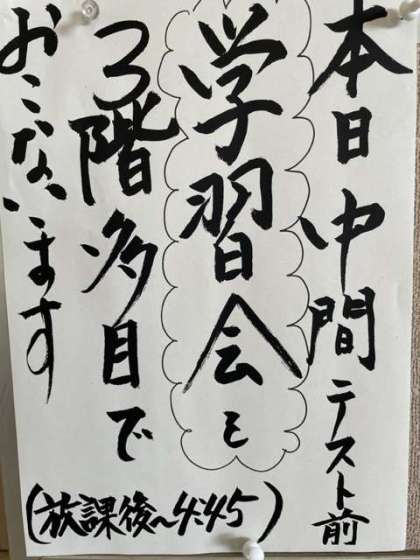 本日中間テスト前
学習会を
3階多目で
おこないます
(放課後～4:45)